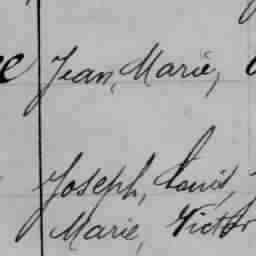 Jean, Marie,
Joseph, Louis,
Marie, Victor